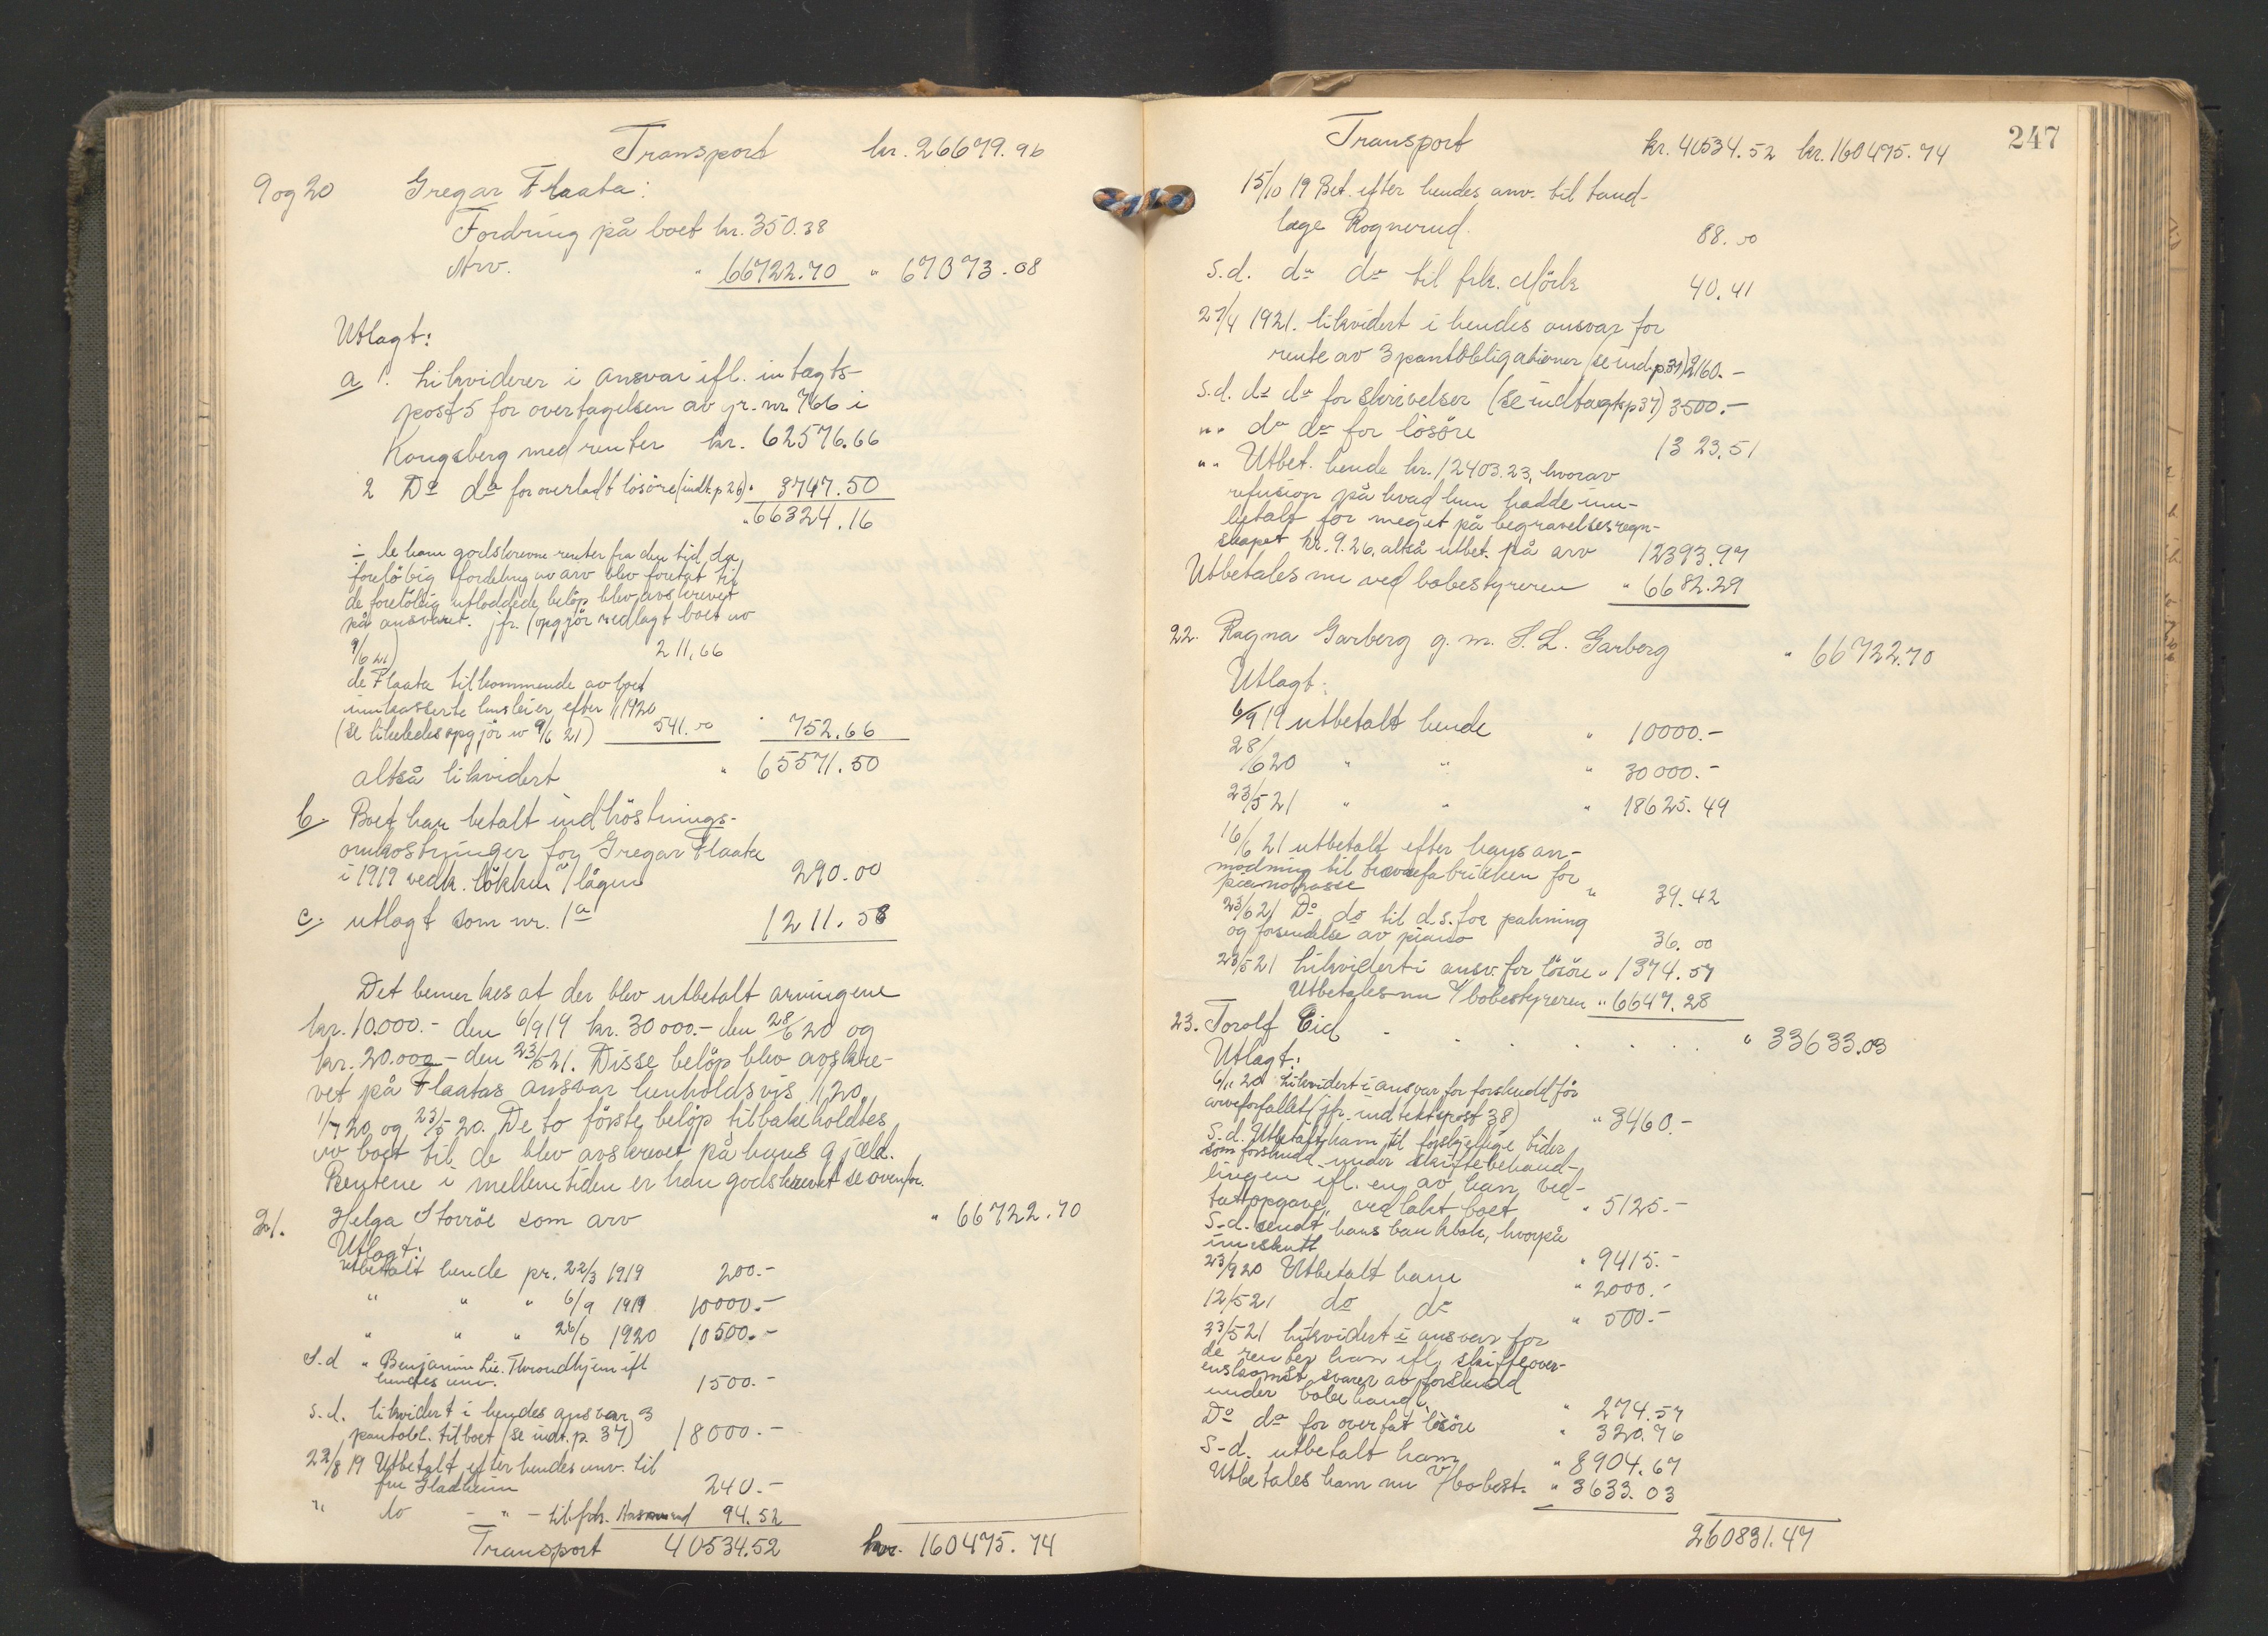 Transport kr. 26679.96
9 og 20 Gregar Flaata:
Fordring på boet kr. 350.38
Arv. " 66722.70 " 67073.08
Utlagt:
a 1. Likviderer i ansvar ifl. intægts-
post 5 for overtagelsen av gr. nr. 766 i
Kongsberg med renter kr. 62576.66
2 Do do for overladt lösöre (indt. p 26) " 3747.50
" 66324.16
÷ de ham godskrevne renter fra den tid da
foreløbig fordeling av arv blev foretat til
de foreløbig utloddede beløp blev avskrevet
på ansvaret. jfr. (opgjör vedlagt boet av
9/6 21) 211,66
de Flaata tilkommende av boet
innkasserte husleier efter 1/1 1920
(se likeledes opgjör av 9/6 21) 541.00 " 752.66
altså likvidert " 65571.50
b. Boet har betalt indhöstnings-
omkostninger for Gregar Flaata
i 1919 vedk. lökken i lågen 290.00
c. utlagt som nr. 1a 1211.58
Det bemerkes at der blev utbetalt arvingene
kr. 10.000.- den 6/9 19 kr. 30 000.- den 28/6 20 og
kr. 20.000 - den 23/5 21. Disse beløp blev avskre-
vet på Flaatas ansvar henholdsvis 1/1 20,
1/7 20 og 23/5 20. De to første beløp tilbakeholdtes
av boet til de blev avskrevet på hans gjæld.
Rentene i mellemtiden er han godskrevet se ovenfor.
21. Helga Storröe som arv " 66722.70
Utlagt:
utbetalt hende pr. 22/3 1919 200.-
" " " 6/9 1919 10000.-
" " " 26/6 1920 10500.-
S.d " Benjamin Lie. Throndhjem ifl
hendes anv. 1500.-
s.d. likvidert i hendes ansvar 3
pantobl. til boet (se indt. p. 37) 18000.-
22/8 19 Utbetalt efter hendes anv. til
fru Hladheim 240.-
" do - " - til frk. 94.52
Transport 40534.52 kr. 160475.74
247
Transport kr. 40534.52 kr. 160475.74
15/10 19 Bet. efter hendes anv. til tand-
læge Rognerud. 88.00
s.d. do do til frk. Mörk 40.41
27/4 1921. likvidert i hendes ansvar for
rente av 3 pantobligationer (se indt. p. 37) 2160.-
s.d. do do for skrivelser (se indtægts p 37) 3500.-
" " do do for lösöre 1323.51
" " Utbet. hende kr. 12403.23, hvorav
refusion på hvad hun hadde inn-
betalt for meget på begravelsesregn-
skapet kr. 9.26, altså utbet. på arv 12393.97
Utbetales nu ved bobestyreren " 6682.29
22. Ragna Garberg g. m. S. L. Garberg " 66722.70
Utlagt:
6/9 19 utbetalt hende " 10000.-
28/6 20 " " " 30000.-
23/5 21 " " " 18625.49
16/6 21 utbetalt efter hans an-
modning til fabrikken for
pianokasse " 39.42
23/6 21 Do do til d.s. for pakning
og forsendelse av piano 36.00
23/5 21 likvidert i ansv. for lösöre " 1374.57
Utbetales nu v/bobestyreren " 6647.28
23. Torolf Eid " 33633.03
Utlagt:
6/11 20 Likvidert i ansvar for forskudd för
arveforfallet (jfr. indtektspost 38) " 3460.-
S.d. Utbetalt ham til forskjellige tider
som forskudd under skiftebehand-
lingen ifl. en av ham ved-
tatt opgave, vedlakt boet " 5125.-
S.d. sendt hans bankbok, hvorpå
inneskutt " 9415.-
23/9 20 Utbetalt ham " 2000.-
12/5 21 do do " 500.-
23/5 21 likvidert i ansvar for
de renter han ifl. skifteover-
enskomst svarer av forskudd
under bobehandl. " 274.57
Do do for overtat lösöre " 320.76
S.d. utbetalt ham " 8904.67
Utbetales ham nu v/bobest. " 3633.03
260831.47